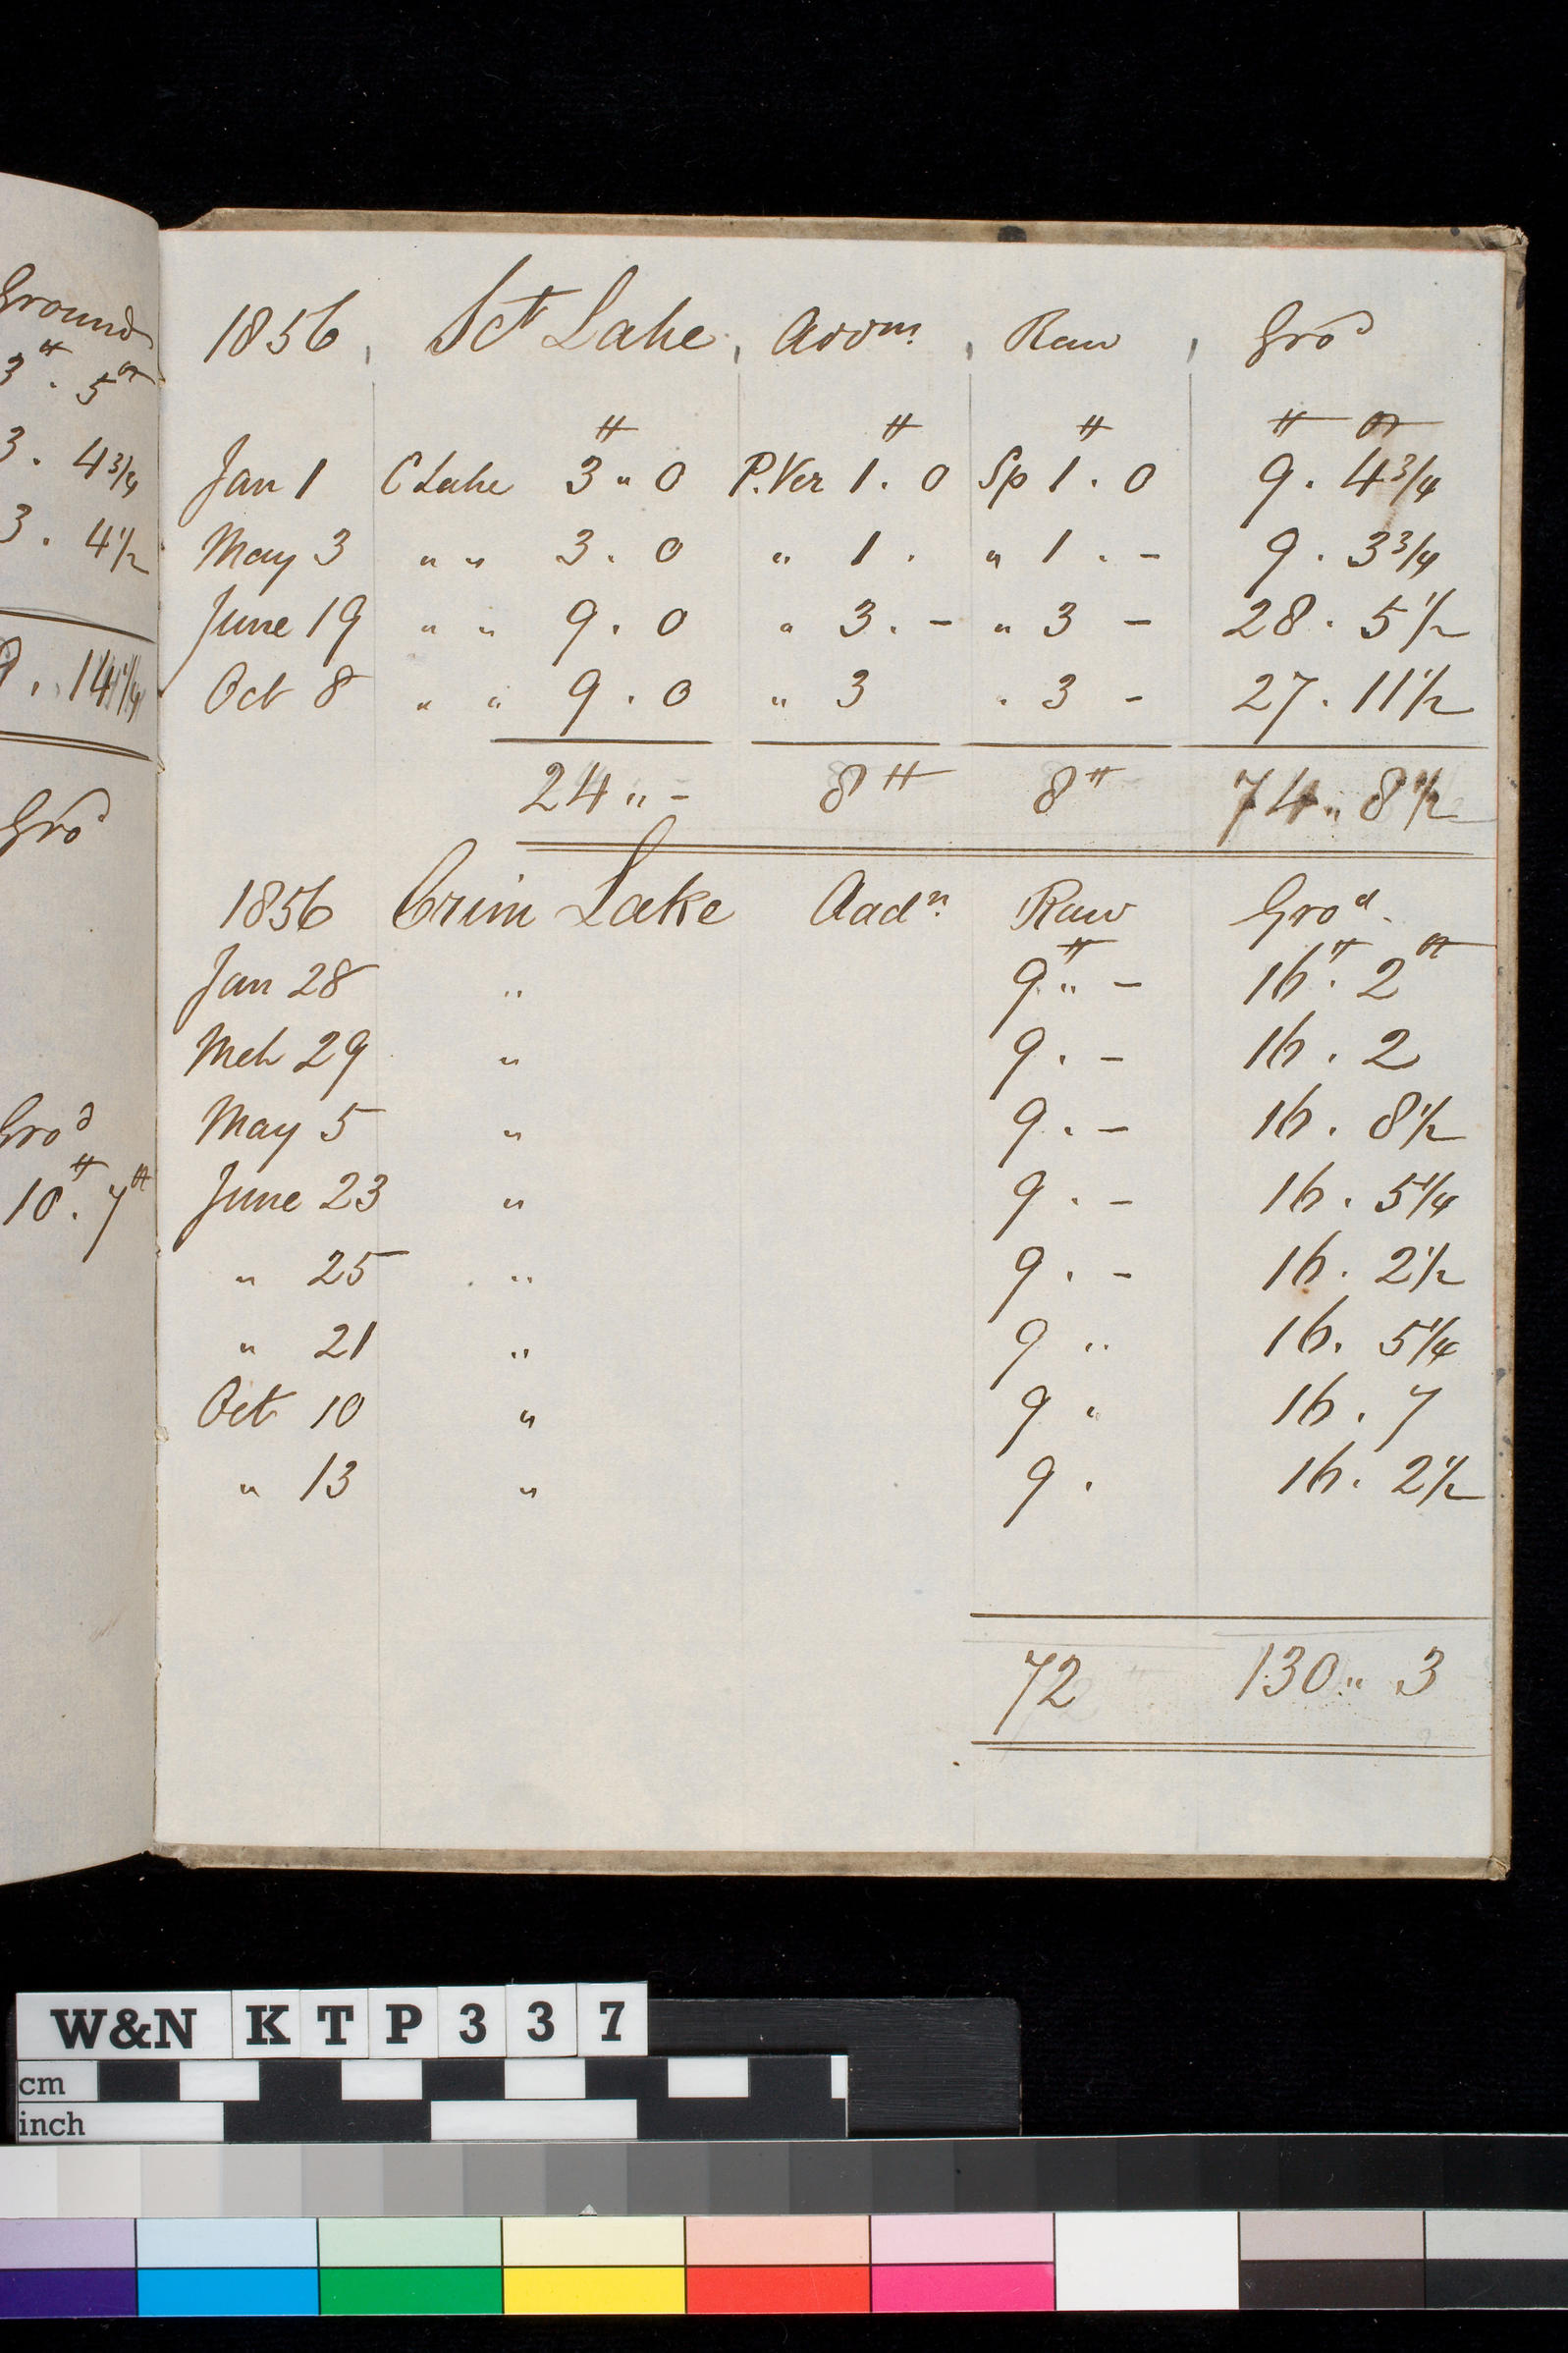 Ground
3 ℔ . 5 oz
3 . 4 3/4
3 . 4 1/2
Gro^d
Gro^d
10 ℔ . 7 oz
1856 , Sct Lake , Addn. , Raw , Gro^d
℔ ℔ ℔ ℔ oz
Jan 1 C Lake 3 " 0 P. Ver 1 . 0 Sp 1 . 0 9 . 4 3/4
May 3 " " 3 . 0 " 1 . " 1 . - 9 . 3 3/4
June 19 " " 9 . 0 " 3 . - " 3 - 28 . 5 1/2
Oct 8 " " 9 . 0 " 3 " 3 - 27 . 11 1/2
24 " - 8 ℔ 8 ℔ 74 " 8 1/2
1856 Crim Lake Aad^n. Raw Gro^d.
Jan 28 " 9 ℔ " - 16 ℔ . 2 oz
Mch 29 " 9 . - 16 . 2
May 5 " 9 . - 16 . 8 1/2
June 23 " 9 . - 16 . 5 1/4
" 25 " 9 . - 16 . 2 1/2
" 21 " 9 " 16 . 5 1/4
Oct 10 " 9 " 16 . 7
" 13 " 9 . 16 . 2 1/2
72 130 " 3
W&N KTP337
cm
inch